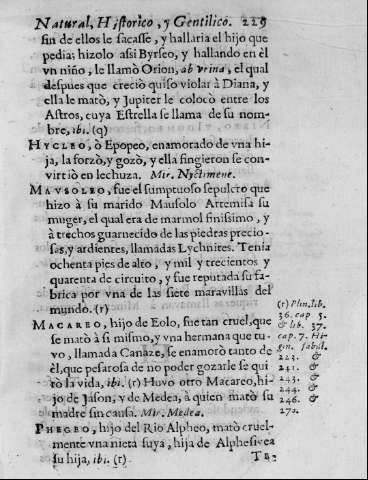 Natural, Historico, y Gentilico. 229
sin de ellos le sacasse, y hallaria el hijo que
pedia; hizolo assi Byrseo, y hallando en èl
vn niño, le llamò Orion, ab vrina, el qual
despues que creciò quiso violar à Diana, y
ella le matò, y Jupiter le colocò entre los
Astros, cuya Estrella se llama de su nom-
bre, ibi. (q)
HYCLEO, ò Epopeo, enamorado de vna hi-
ja, la forzò, y gozò, y ella fingieron se con-
virtiò en lechuza. Mir. Nyctimene.
MAVSOLEO, fue el sumptuoso sepulcro que
hizo à su marido Mausolo Artemisa su
muger, el qual era de marmol finissimo, y
à trechos guarnecido de las piedras precio-
sas, y ardientes, llamadas Lychnites. Tenia
ochenta pies de alto, y mil y trecientos y
quarenta de circuito, y fue reputada su fa-
brica por vna de las siete maravillas del
mundo. (r)
MACAREO, hijo de Eolo, fue tan cruel, que
se matò à si mismo, y vna hermana que tu-
vo, llamada Canaze, se enamorò tanto de
èl, que pesarosa de no poder gozarle se qui
tò la vida, ibi. (r) Huvo otro Macareo, hi-
jo de Jason, y de Medea, à quien matò su
madre sin causa. Mir. Medea.
PHEGEO, hijo del Rio Alpheo, matò cruel-
mente vna nieta suya, hija de Alphesivea
su hija, ibi. (r)
(r) Plin. lib.
36. cap 5.
& lib. 37.
cap. 7. Hi-
gin. fabul.
223. &
241. &
243. &
244. &
246. &
270.